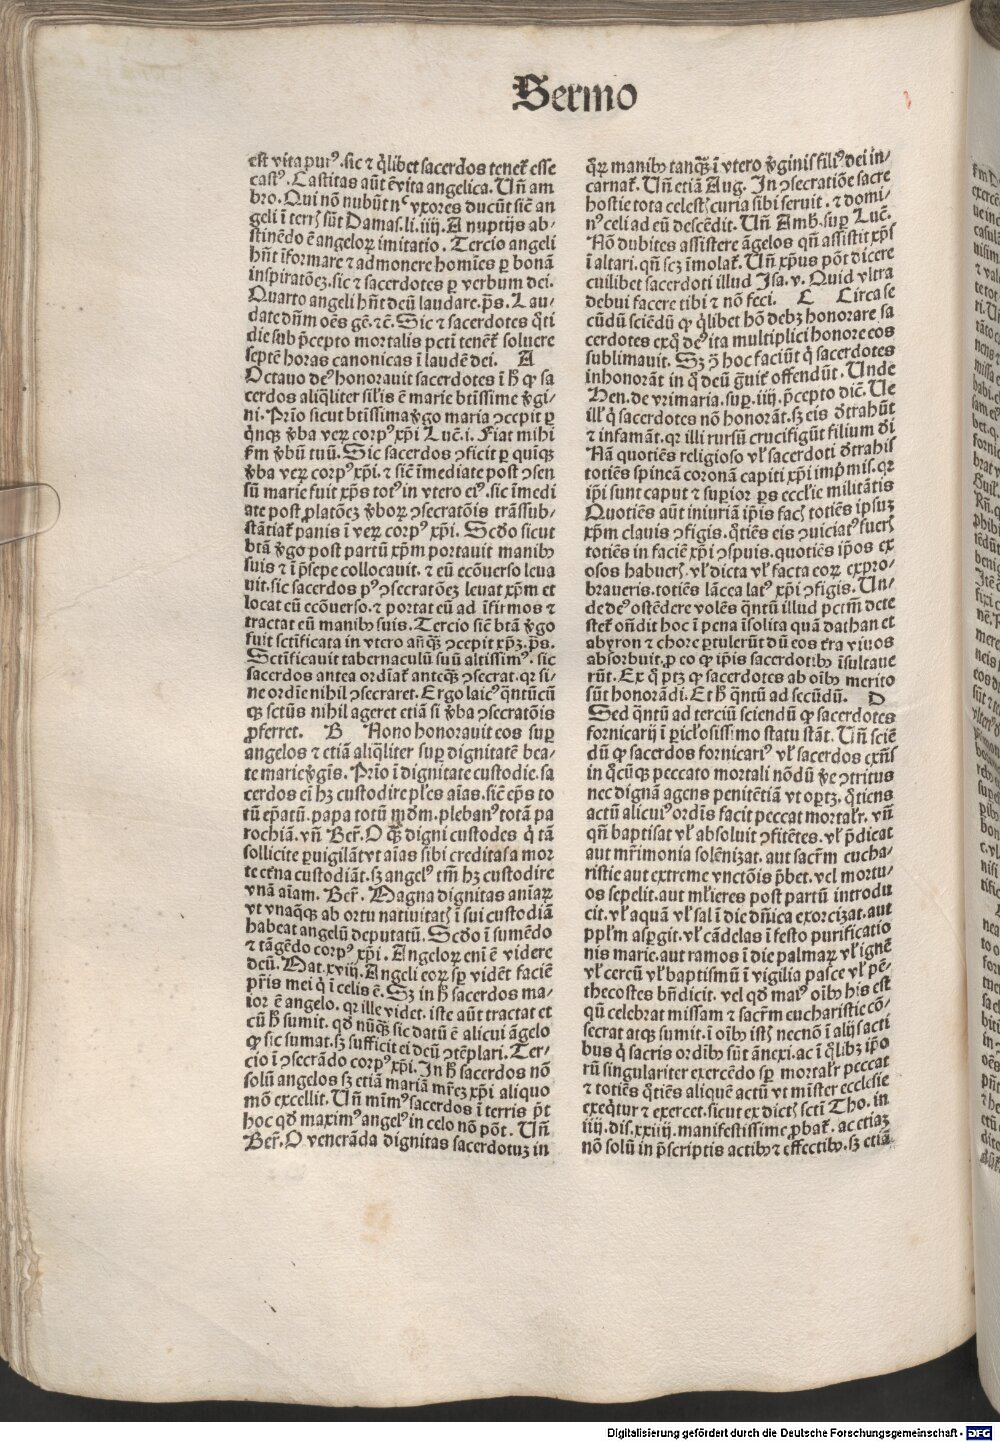 Sermo
est vita puriꝰ.sic ⁊ q̄libet sacerdos tenet̄ esse
castꝰ. Castitas aūt ē vita angelica. Vn̄ am
bro. Qui nō nubūt nec vxores ducūt sic̄ an
geli ī terris sūt Damas.li.iiij. A nuptijs ab⸗
stinēdo ē angeloꝝ imitatio. Tercio angeli
hn̄t īformare ⁊ admonere homīes ꝑ bonā
inspiratōeꝫ.sic ⁊ sacerdotes ꝑ verbum dei.
Quarto angeli hn̄t deū laudare.ps̄. Lau⸗
date dn̄m oēs gē.⁊c̄. Sic ⁊ sacerdotes q̄ti
die sub p̄cepto mortalis pcti tenet̄ soluere
septē horas canonicas ī laudē dei. A
Octauo deꝰ honorauit sacerdotes ī h̄ ꝙ sa
cerdos aliq̄liter sil̄is ē marie btīssime v̄gi⸗
ni. Prīo sicut btīssima v̄go maria ↄcepit ꝑ
q̄nqꝫ v̄ba veꝝ corpꝰ xp̄i Luc̄.i. Fiat mihi
ẜm v̄bū tuū. Sic sacerdos ↄficit ꝑ quiqꝫ
v̄ba veꝝ corpꝰ xp̄i. ⁊ sic̄ īmediate post ↄsen
sū marie fuit xp̄s totꝰ in vtero eiꝰ.sic īmedi
ate post ꝓlatōeꝫ v̄boꝝ ↄsecratōis trāssub⸗
stātiat̄ panis ī veꝝ corpꝰ xp̄i. Scd̄o sicut
btā v̄go post partū xp̄m portauit manibꝰ
suis ⁊ ī p̄sepe collocauit. ⁊ eū ecōuerso leua
uit.sic sacerdos pꝰ ↄsecratōeꝫ leuat xp̄m et
locat eū ecōuerso.⁊ portat eū ad īfirmos ⁊
tractat eū manibꝰ suis. Tercio sic̄ btā v̄go
fuit sctīficata in vtero an̄q̄ꝫ ↄcepit xp̄ꝫ.ps̄.
Sctīficauit tabernaculū suū altissimꝰ.sic
sacerdos antea ordīat̄ anteq̄ꝫ ↄsecrat.qr si⸗
ne ordīe nihil ↄsecraret. Ergo laicꝰ q̄ntūcū
qꝫ sctūs nihil ageret etiā si v̄ba ↄsecratōis
ꝓferret. B Nono honorauit eos supꝑ
angelos ⁊ etiā aliq̄liter supꝑ dignitatē bea⸗
te marie v̄gīs. Prīo ī dignitate custodie.sa
cerdos eī hꝫ custodire pl̄es aīas.sic̄ ep̄s to
tū ep̄atū.papa totū mūdm.plebanꝰ totā pa
rochiā.vn̄ Ber̄. O q̄ꝫ digni custodes q̄ tā
sollicite ꝑuigilāt vt aīas sibi creditas a mor
te et̄na custodiāt.sꝫ angelꝰ tm̄ hꝫ custodire
vnā aīam. Ber̄. Magna dignitas aniaꝝ
vt vnaq̄qꝫ ab ortu natiuitatis ī sui custodiā
habeat angelū deputatū. Scd̄o ī sumēdo
⁊ tāgēdo corpꝰ xp̄i. Angeloꝝ enī ē videre
deū. Mat.xviij. Angeli eoꝝ sꝑ vidēt faciē
pr̄is mei q̄ ī celis ē. Sꝫ in h̄ sacerdos ma⸗
ior ē angelo. qr ille videt.iste aūt tractat et
cū h̄ sumit. qd̄ nūq̄ꝫ sic datū ē alicui āgelo
ꝙ sic sumat.sꝫ sufficit ei deū ↄtēplari. Ter⸗
cio ī ↄsecrādo corpꝰ xp̄i. In h̄ sacerdos nō
solū angelos sꝫ etiā mariā mr̄eꝫ xp̄i aliquo
mō excellit. Vn̄ mīmꝰ sacerdos ī terris p̄t
hoc qd̄ maximꝰ angelꝰ in celo nō pōt. Vn̄
Ber̄. O venerāda dignitas sacerdotuꝫ in
q̄ꝝ manibꝰ tanq̄ꝫ ī vtero v̄ginis filiꝰ dei in⸗
carnat̄. Vn̄ etiā Aug. In ↄsecratiōe sacre
hostie tota celestis curia sibi seruit.⁊ domi⸗
nꝰ celi ad eū descēdit. Vn̄ Amb̄.suꝑ Luc̄.
Nō dubites assistere āgelos qn̄ assistit xp̄s
ī altari.qn̄ scꝫ īmolat̄. Vn̄ xp̄us pōt dicere
cuilibet sacerdoti illud Isa.v. Quid vltra
debui facere tibi ⁊ nō feci. C Circa se
cūdū sciēdū ꝙ q̄libet hō debꝫ honorare sa
cerdotes exq̄ deꝰ ita multiplici honore eos
sublimauit. Sꝫ ꝯ hoc faciūt q̄ sacerdotes
inhonorāt in q̄ deū gr̄uit̄ offendūt. Vnde
Hen.de vrimaria.suꝑ.iiij.p̄cepto dic̄. Ve
ill̄ q̄ sacerdotes nō honorāt.sꝫ eis d̄trahūt
⁊ infamāt.qr illi rursū crucifigūt filium di
Nā quotiēs religioso vl̄ sacerdoti d̄trahis
totiēs spineā coronā capiti xp̄i imp̄mis.qr
ip̄i sunt caput ⁊ suꝑior ꝑs eccl̄ie militātis
Quotiēs aūt iniuriā ip̄is facis totiēs ipsuꝫ
xp̄m clauis ↄfigis.q̄tiēs eis ↄuiciatꝰ fueris
totiēs in faciē xp̄i ↄspuis.quotiēs ip̄os ex
osos habueris.vl̄ dicta vl̄ facta eoꝝ expro⸗
braueris.totiēs lācea latꝰ xp̄i ↄfigis. Vn⸗
de deꝰ ostēdere volēs q̄ntū illud pctm̄ dete
stet̄ on̄dit hoc ī pena īsolita quā dathan et
abyron ⁊ chore ꝑtulerūt dū eos t̄ra viuos
absorbuit.ꝓ eo ꝙ ip̄is sacerdotibꝰ īsultaue
rūt. Ex q̄ ptꝫ ꝙ sacerdotes ab oībꝰ merito
sūt honorādi. Et h̄ q̄ntū ad secūdū. D
Sed q̄ntū ad terciū sciendū ꝙ sacerdotes
fornicarij ī ꝑiclosissimo statu stāt. Vn̄ sciē
dū ꝙ sacerdos fornicariꝰ vl̄ sacerdos exn̄s
in q̄cūqꝫ peccato mortali nōdū v̄e ↄtritus
nec dignā agens penitētiā vt oꝑtꝫ.q̄tiens
actū alicuiꝰ ordīs facit peccat mortalr̄.vn̄
qn̄ baptisat vl̄ absoluit ↄfitētes.vl̄ p̄dicat
aut mr̄imonia solēnizat.aut sacr̄m eucha⸗
ristie aut extreme vnctōis p̄bet.vel mortu⸗
os sepelit.aut ml̄ieres post partū introdu
cit.vl̄ aquā vl̄ sal ī die dn̄ica exorcizat.aut
ppl̄m asꝑgit.vl̄ cādelas ī festo purificatio
nis marie.aut ramos ī die palmaꝝ vl̄ ignē
vl̄ cereū vl̄ baptismū ī vigilia pasce vl̄ pē⸗
thecostes bn̄dicit. vel qd̄ maiꝰ oībꝰ his est
qū celebrat missam ⁊ sacr̄m eucharistie cō⸗
secrat atqꝫ sumit.ī oībꝰ istis necnō ī alijs acti
bus q̄ sacris ordībꝰ sūt ānexi.ac ī q̄libꝫ ip̄o
rū singulariter exercēdo sꝑ mortalr̄ peccat
⁊ totiēs q̄tiēs aliquē actū vt mīster ecclesie
exeq̄tur ⁊ exercet.sicut ex dictis scti Tho.in
iiij.dis.xxiiij.manifestissime ꝓbat̄.ac etiaꝫ
nō solū in p̄scriptis actibꝰ ⁊ effectibꝰ.sꝫ etiā
Digitalisierung gefördert durch die Deutsche Forschungsgemeinschaft - DFG